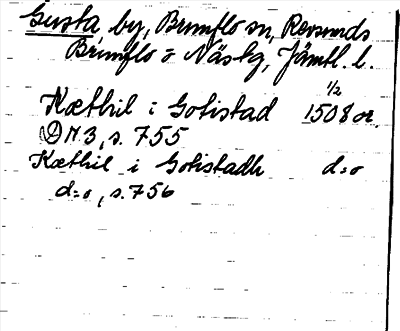 Gusta by, Brunflo sn, Revsunds
Brunflo o Näs tg, Jämtl. l.
1/2
Kæthil i Gotistad 1508 or.
DN 3, s. 755
Kæthil i Gotistadh d:o
d:o, s. 756